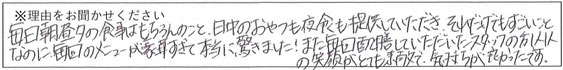 ※理由をお聞かせください
毎日朝昼夕の食事はもちろんのこと、日中のおやつも夜食も提供していただき、それだけでもすごいこと
なのに、毎回のメニューが豪華すぎて本当に驚きました！また毎回配膳していただいたスタッフの方々
の笑顔がとても素敵で、気持ちが良かったです。